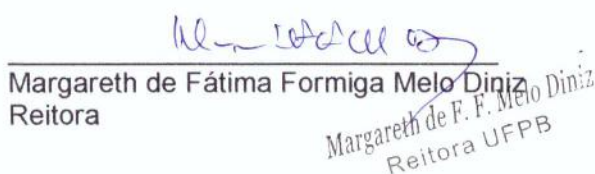 Margareth de Fátima Formiga Melo Diniz
Reitora
Margareth de F. F. Melo Diniz
Reitora UFPB